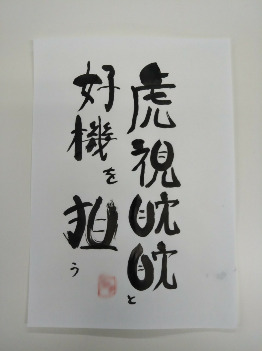 虎視眈眈と
好機を狙う